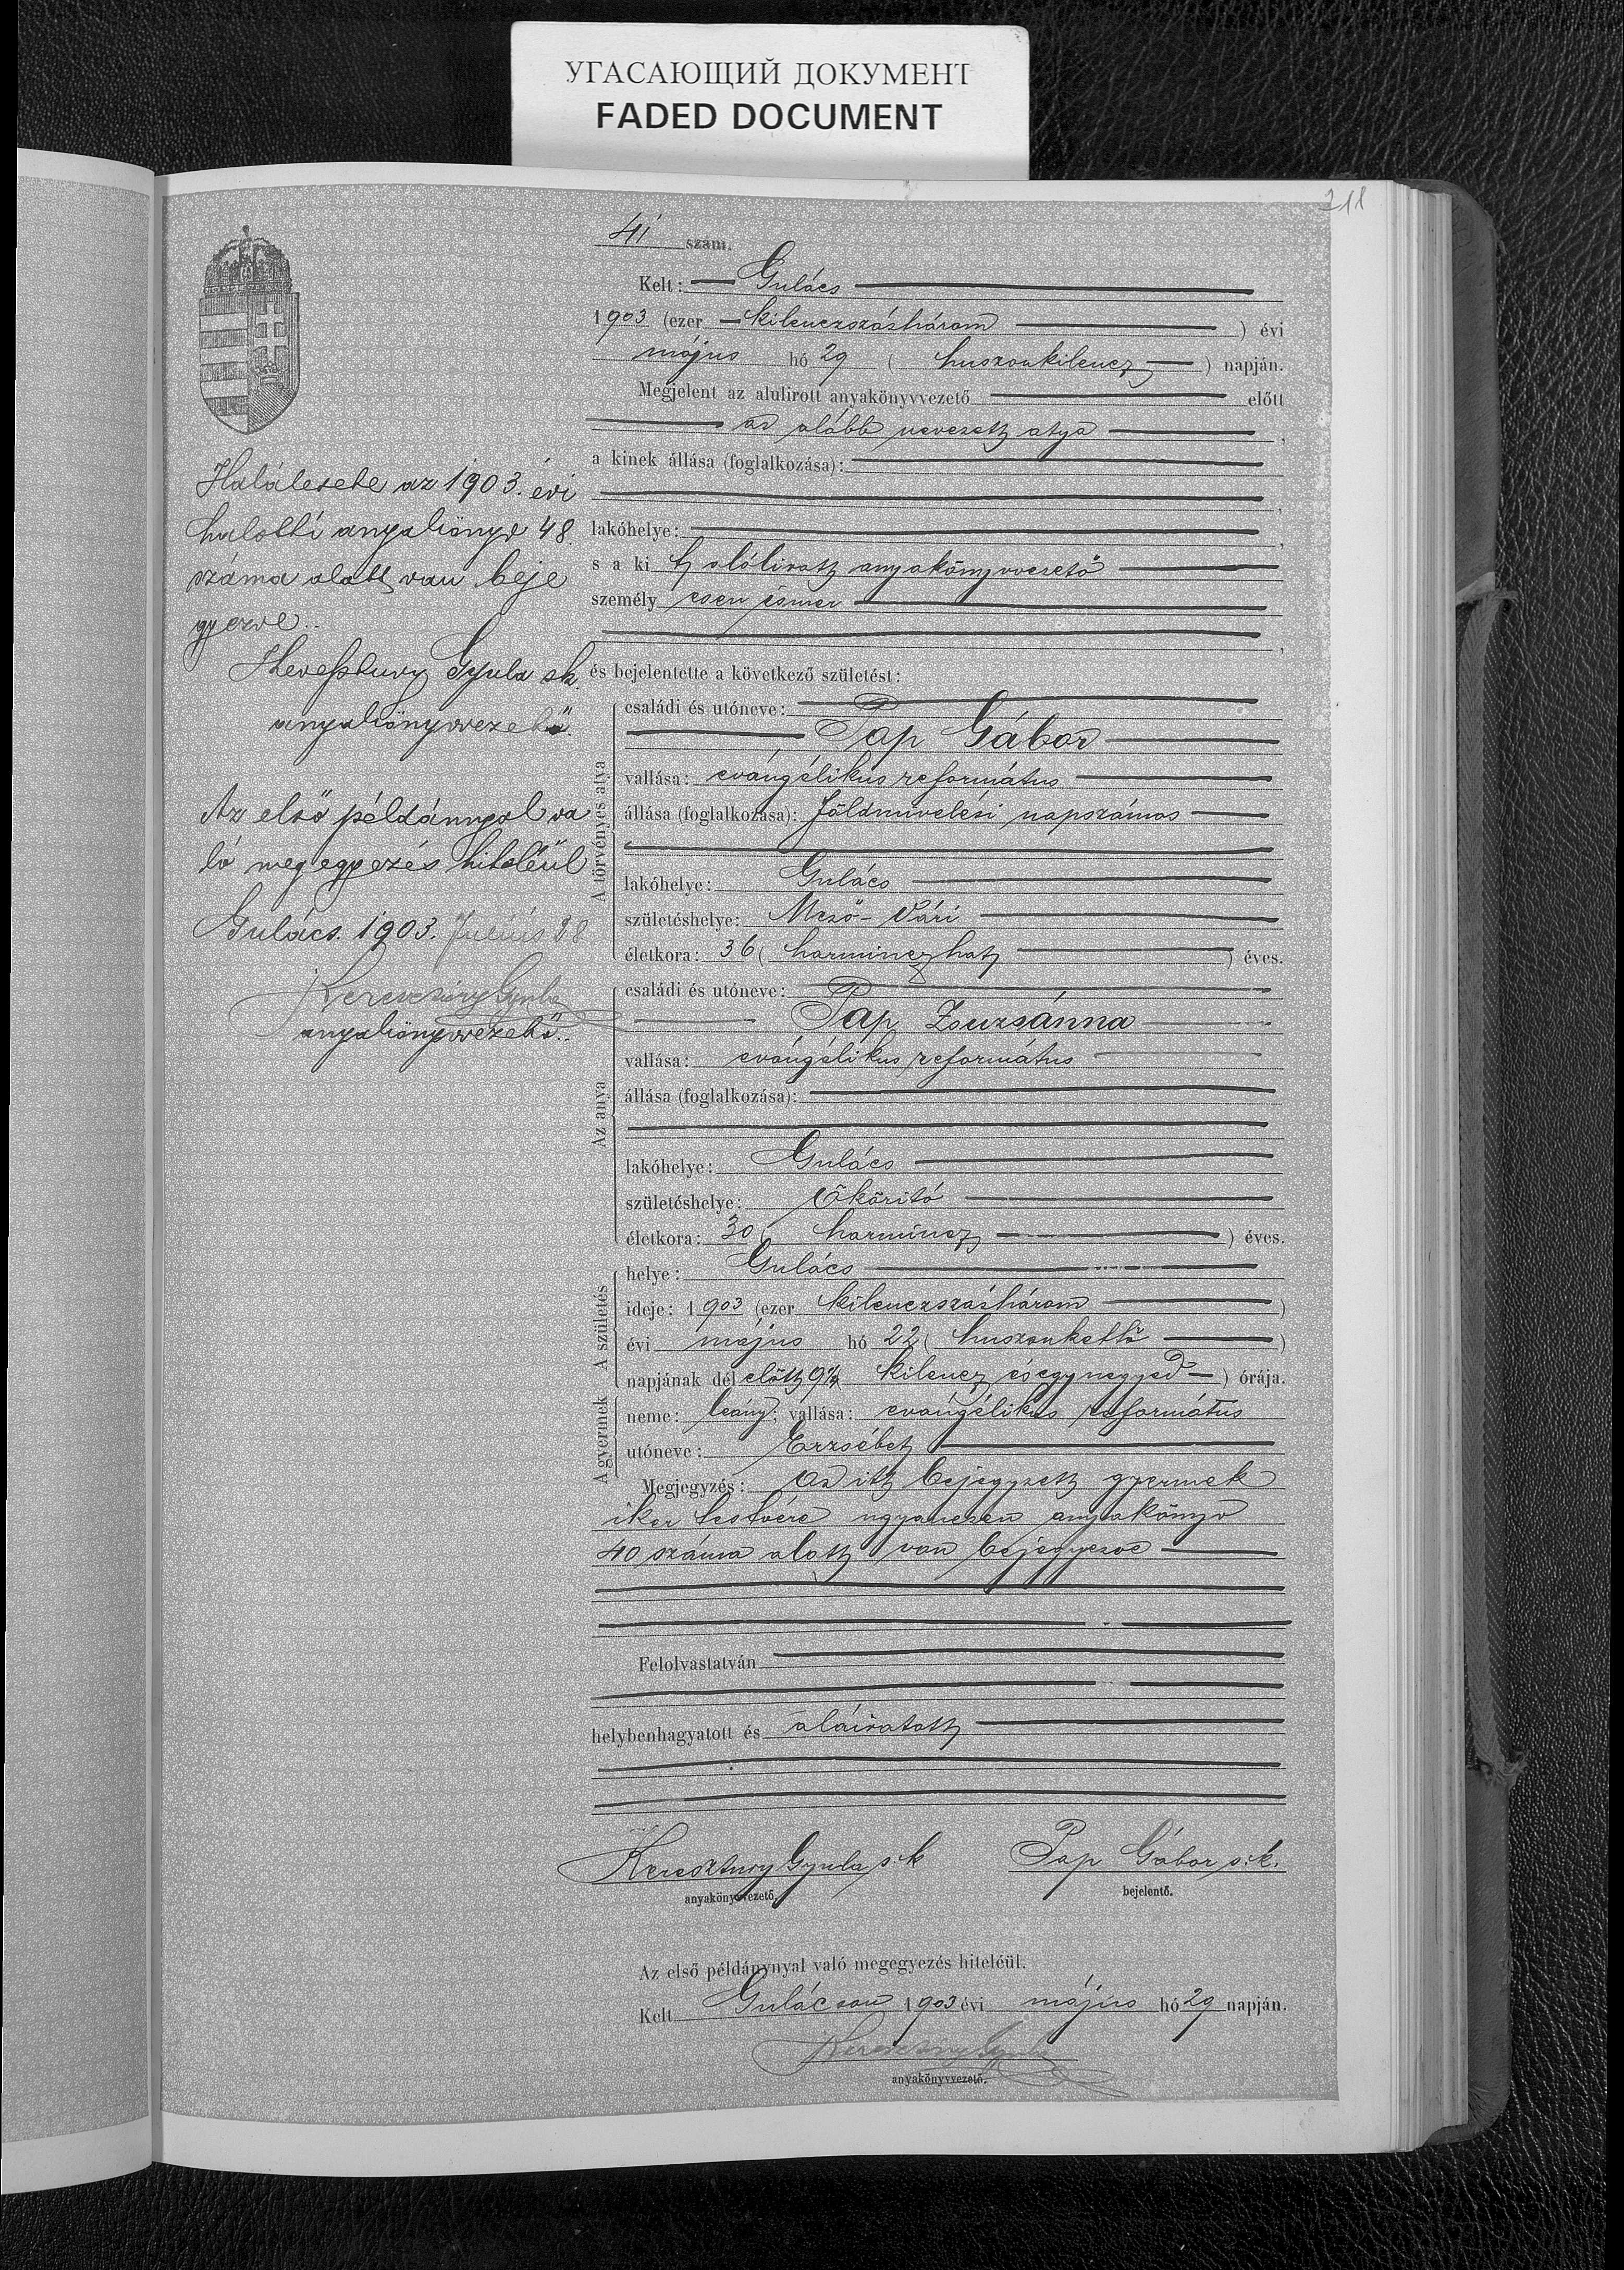 УГАСАЮЩИЙ ДОКУМЕНТ
FADED DOCUMENT
211
41 szám.
Kelt: Gulács
1903 (ezer kilenczszázhárom) évi
május hó 29 (huszonkilencz) napján.
Megjelent az alulirott anyakönyvvezető előtt
az alább nevezett atya,
a kinek állása (foglalkozása):
lakóhelye:
s a ki t, alólirott anyakönyvvezető
személyesen ismer
és bejelentette a következő születést:
A törvényes atya
családi és utóneve:
Pap Gábor
vallása: evángélikus református
állása (foglalkozása): földmivelési napszámos
lakóhelye: Gulács
születéshelye: Mező-Vári
életkora: 36 (harminczhat) éves.
Az anya
családi és utóneve:
Pap Zsuzsánna
vallása: evángélikus református
állása (foglalkozása):
lakóhelye: Gulács
születéshelye: Ököritó
életkora: 30 (harmincz) éves.
A születés
helye: Gulács
ideje: 1903 (ezer kilenczszázhárom)
évi május hó 22 (huszonkettő)
napjának dél előtt 9 1/4 (kilencz és egynegyed) órája.
A gyermek
neme: leány; vallása: evángélikus református
utóneve: Erzsébet
Megjegyzés: Az itt bejegyzett gyermek
iker testvére ugyanezen anyakönyv
40 száma alatt van bejegyezve
Felolvastatván
helybenhagyatott és aláiratott
Keresztury Gyula s.k
anyakönyvvezető.
Pap Gábor s.k.
bejelentő.
Az első példánynyal való megegyezés hiteléül.
Kelt Gulácson 1903 évi május hó 29 napján.
Keresztury Gyula
anyakönyvvezető.
Halálesete az 1903. évi
halotti anyakönyv 48.
száma alatt van beje
gyezve.
Keresztury Gyula sk.
anyakönyvvezető.
Az első példánnyal va
ló megegyezés hiteléül
Gulács. 1903. Július 28
Keresztury Gyula
anyakönyvvezető.